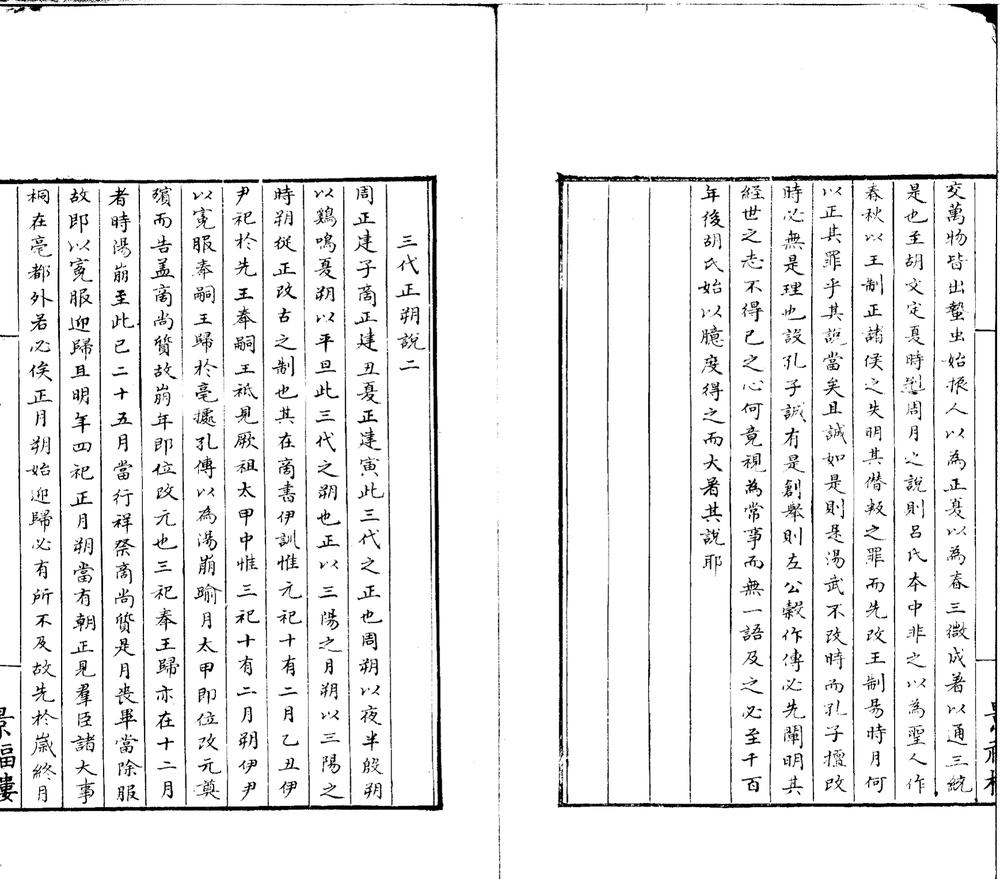 交萬物皆出蟄虫始振人以為正夏以為春三微成著以通三統
是也至胡文定夏時冠周月之說則呂氏本中非之以為聖人作
春秋以王制正諸侯之失明其僭叛之罪而先改王制易時月何
以正其罪乎其說當矣且誠如是則是湯武不改時而孔子擅改
時必無是理也設孔子誠有是創舉則左公穀作傳必先闡明其
經世之志不得已之心何竟視為常事而無一語及之必至千百
年後胡氏始以臆度得之而大著其說耶
三代正朔說二
周正建子商正建丑夏正建寅此三代之正也周朔以夜半殷朔
以鷄鳴夏朔以平旦此三代之朔也正以三陽之月朔以三陽之
時朔從正改古之制也其在商書伊訓惟元祀十有二月乙丑伊
尹祀於先王奉嗣王祗見厥祖太甲中惟三祀十有二月朔伊尹
以冕服奉嗣王歸於亳據孔傳以為湯崩踰月太甲即位改元奠
殯而告盖商尚質故崩年即位改元也三祀奉王歸亦在十二月
者時湯崩至此已二十五月當行祥祭商尚質是月喪畢當除服
故即以冕服迎歸且明年四祀正月朔當有朝正見羣臣諸大事
桐在亳都外若必俟正月朔始迎歸必有所不及故先於嵗終月
景福樓